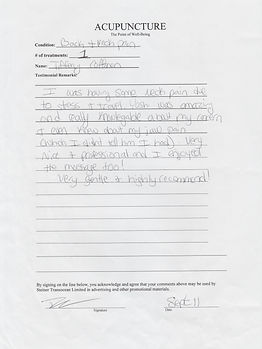 ACUPUNCTURE
The Point of Well-Being
Condition: Back & Neck pain
# of treatments: 1
Name: Tiffany
Testimonial Remarks:
I was having some neck pain due
to stress & travel. Yoshi was amazing
and really knowledgable about my
I even knew about my jaw pain
(which I didn't tell him I had) Very
nice & professional and I enjoyed
the massage too!
Very gentle & highly recommend!
By signing on the line below, you acknowledge and agree that your comments above may be used by
Steiner Transocean Limited in advertising and other promotional materials.
Sept 11
Signature Date